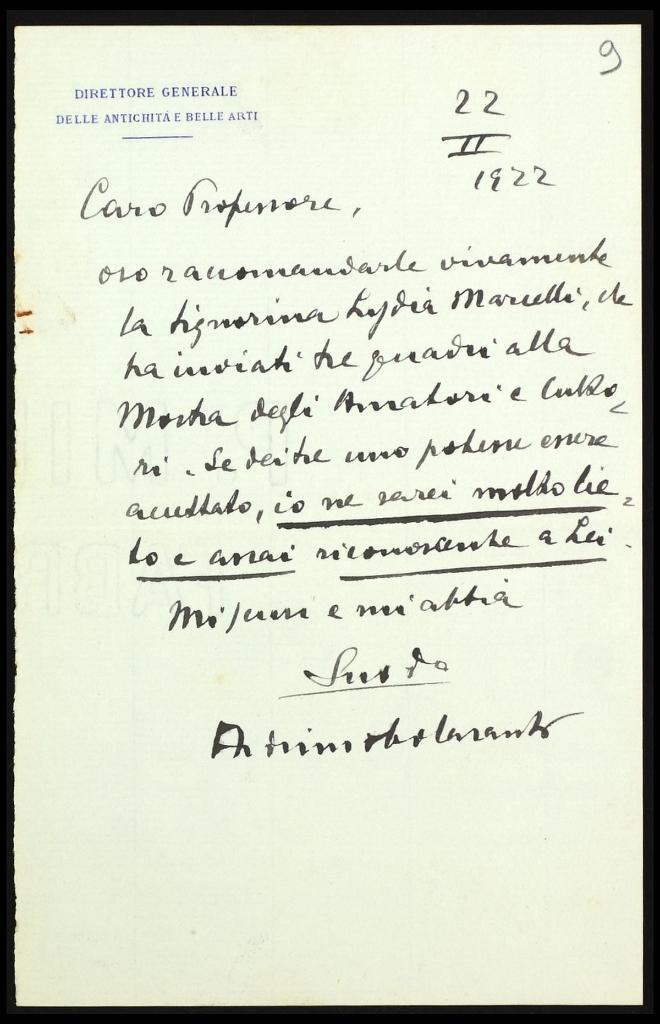 9
DIRETTORE GENERALE
DELLE ANTICHITÁ E BELLE ARTI
22
II
1922
Caro Professore,
oso raccomandarle vivamente
la signorina Lydia Marcelli, che
ha inviati tre quadri alla
Mostra degli Amatori e Culto-
ri. Se dei tre uno potesse essere
accettato, io ne sarei molto lie-
to e assai riconoscente a Lei.
Mi scusi e mi abbia
Suo do
Arduino Colasanti